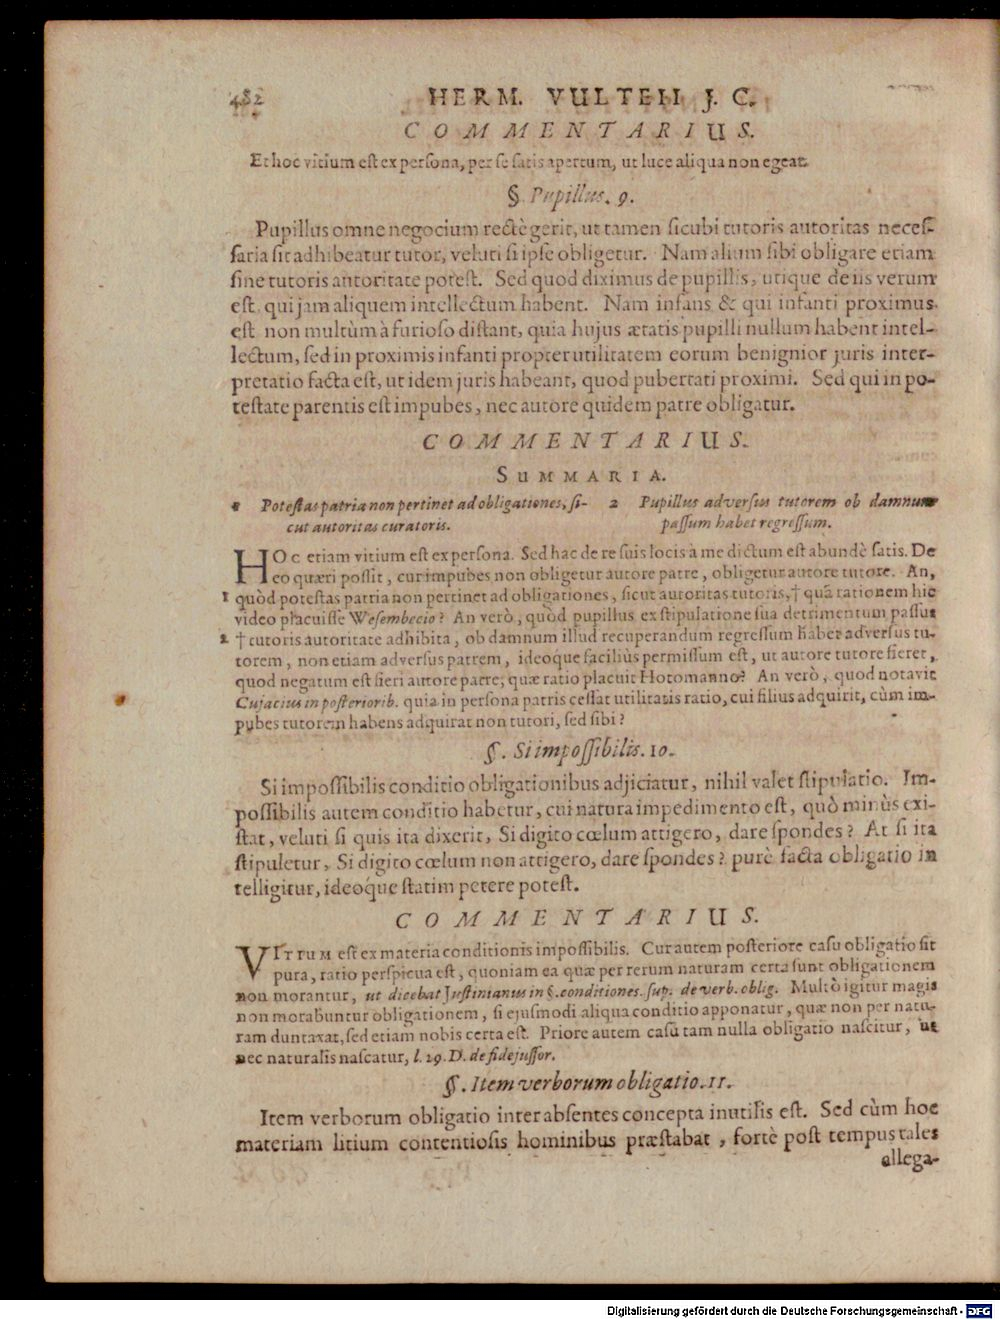 482 HERM. VULTEII J. C.
COMMENTARIUS.
Et hoc vitium est ex persona, per se satis apertum, ut luce aliqua non egeat.
§. Pupillus. 9.
Pupillus omne negocium rectè gerit, ut tamen sicubi tutoris autoritas neces-
saria sit adhibeatur tutor, veluti si ipse obligetur. Nam alium sibi obligare etiam
sine tutoris autoritate potest. Sed quod diximus de pupillis, utique de iis verum
est, qui jam aliquem intellectum habent. Nam infans & qui infanti proximus
est non multùm à furioso distant, quia hujus ætatis pupilli nullum habent intel-
lectum, sed in proximis infanti propter utilitatem eorum benignior juris inter-
pretatio facta est, ut idem juris habeant, quod pubertati proximi. Sed qui in po-
testate parentis est impubes, nec autore quidem patre obligatur.
COMMENTARIUS.
SUMMARIA.
1 Potestas patria non pertinet ad obligationes, si-
cut autoritas curatoris.
2 Pupillus adversus tutorem ob damnum
passum habet regressum.
HOc etiam vitium est ex persona. Sed hac de re suis locis à me dictum est abundè satis. De
eo quæri possit, cur impubes non obligetur autore patre, obligetur autore tutore. An,
1 quòd potestas patria non pertinet ad obligationes, sicut autoritas tutoris, † quā rationem hic
video placuisse Wesembecio? An verò, quòd pupillus ex stipulatione sua detrimentum passus
2 † tutoris autoritate adhibita, ob damnum illud recuperandum regressum habet adversus tu-
torem, non etiam adversus patrem, ideoque faciliùs permissum est, ut autore tutore fieret,
quod negatum est fieri autore patre; quæ ratio placuit Hotomanno? An verò, quod notavit
Cujacius in posteriorib. quia in persona patris cessat utilitatis ratio, cui filius adquirit, cùm im-
pubes tutorem habens adquirat non tutori, sed sibi?
§. Si impossibilis. 10.
Si impossibilis conditio obligationibus adjiciatur, nihil valet stipulatio. Im-
possibilis autem conditio habetur, cui natura impedimento est, quò minùs exi-
stat, veluti si quis ita dixerit, Si digito cœlum attigero, dare spondes? At si ita
stipuletur, Si digito cœlum non attigero, dare spondes? purè facta obligatio in
telligitur, ideoque statim petere potest.
COMMENTARIUS.
VITIUM est ex materia conditionis impossibilis. Cur autem posteriore casu obligatio sit
pura, ratio perspicua est, quoniam ea quæ per rerum naturam certa sunt obligationem
non morantur, ut dicebat Justinianus in §. conditiones. sup. de verb. oblig. Multò igitur magis
non morabuntur obligationem, si ejusmodi aliqua conditio apponatur, quæ non per natu-
ram duntaxat, sed etiam nobis certa est. Priore autem casu tam nulla obligatio nascitur, ut
nec naturalis nascatur, l. 29. D. de fidejussor.
§. Item verborum obligatio. 11.
Item verborum obligatio inter absentes concepta inutilis est. Sed cùm hoc
materiam litium contentiosis hominibus præstabat, fortè post tempus tales
allega-
Digitalisierung gefördert durch die Deutsche Forschungsgemeinschaft - DFG